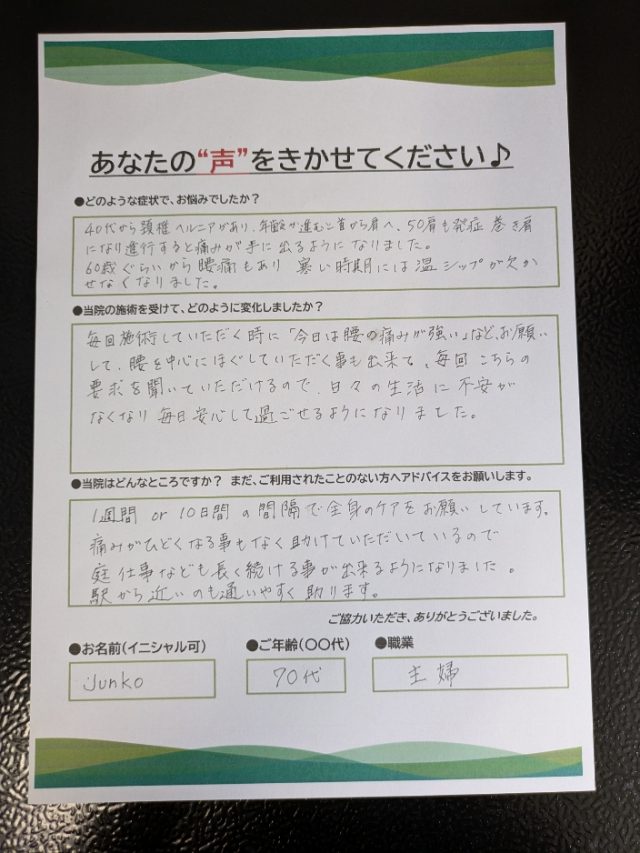 あなたの“声”をきかせてください♪
●どのような症状で、お悩みでしたか？
40代から頚椎ヘルニアがあり、年齢が進むと首から肩へ、50肩も発症 巻き肩
になり進行すると痛みが手に出るようになりました。
60歳ぐらいから腰痛もあり 寒い時期には温シップが欠か
せなくなりました。
●当院の施術を受けて、どのように変化しましたか？
毎回施術していただく時に「今日は腰の痛みが強い」など、お願い
して、腰を中心にほぐしていただく事も出来る、毎回こちらの
要求を聞いていただけるので、日々の生活に不安が
なくなり毎日安心して過ごせるようになりました。
●当院はどんなところですか？ まだ、ご利用されたことのない方へアドバイスをお願いします。
1週間 or 10日間の間隔で全身のケアをお願いしています。
痛みがひどくなる事もなく助けていただいているので
庭仕事なども長く続ける事が出来るようになりました。
駅から近いのも通いやすく助ります。
ご協力いただき、ありがとうございました。
●お名前(イニシャル可) ●ご年齢(〇〇代) ●職業
Junko 70代 主婦